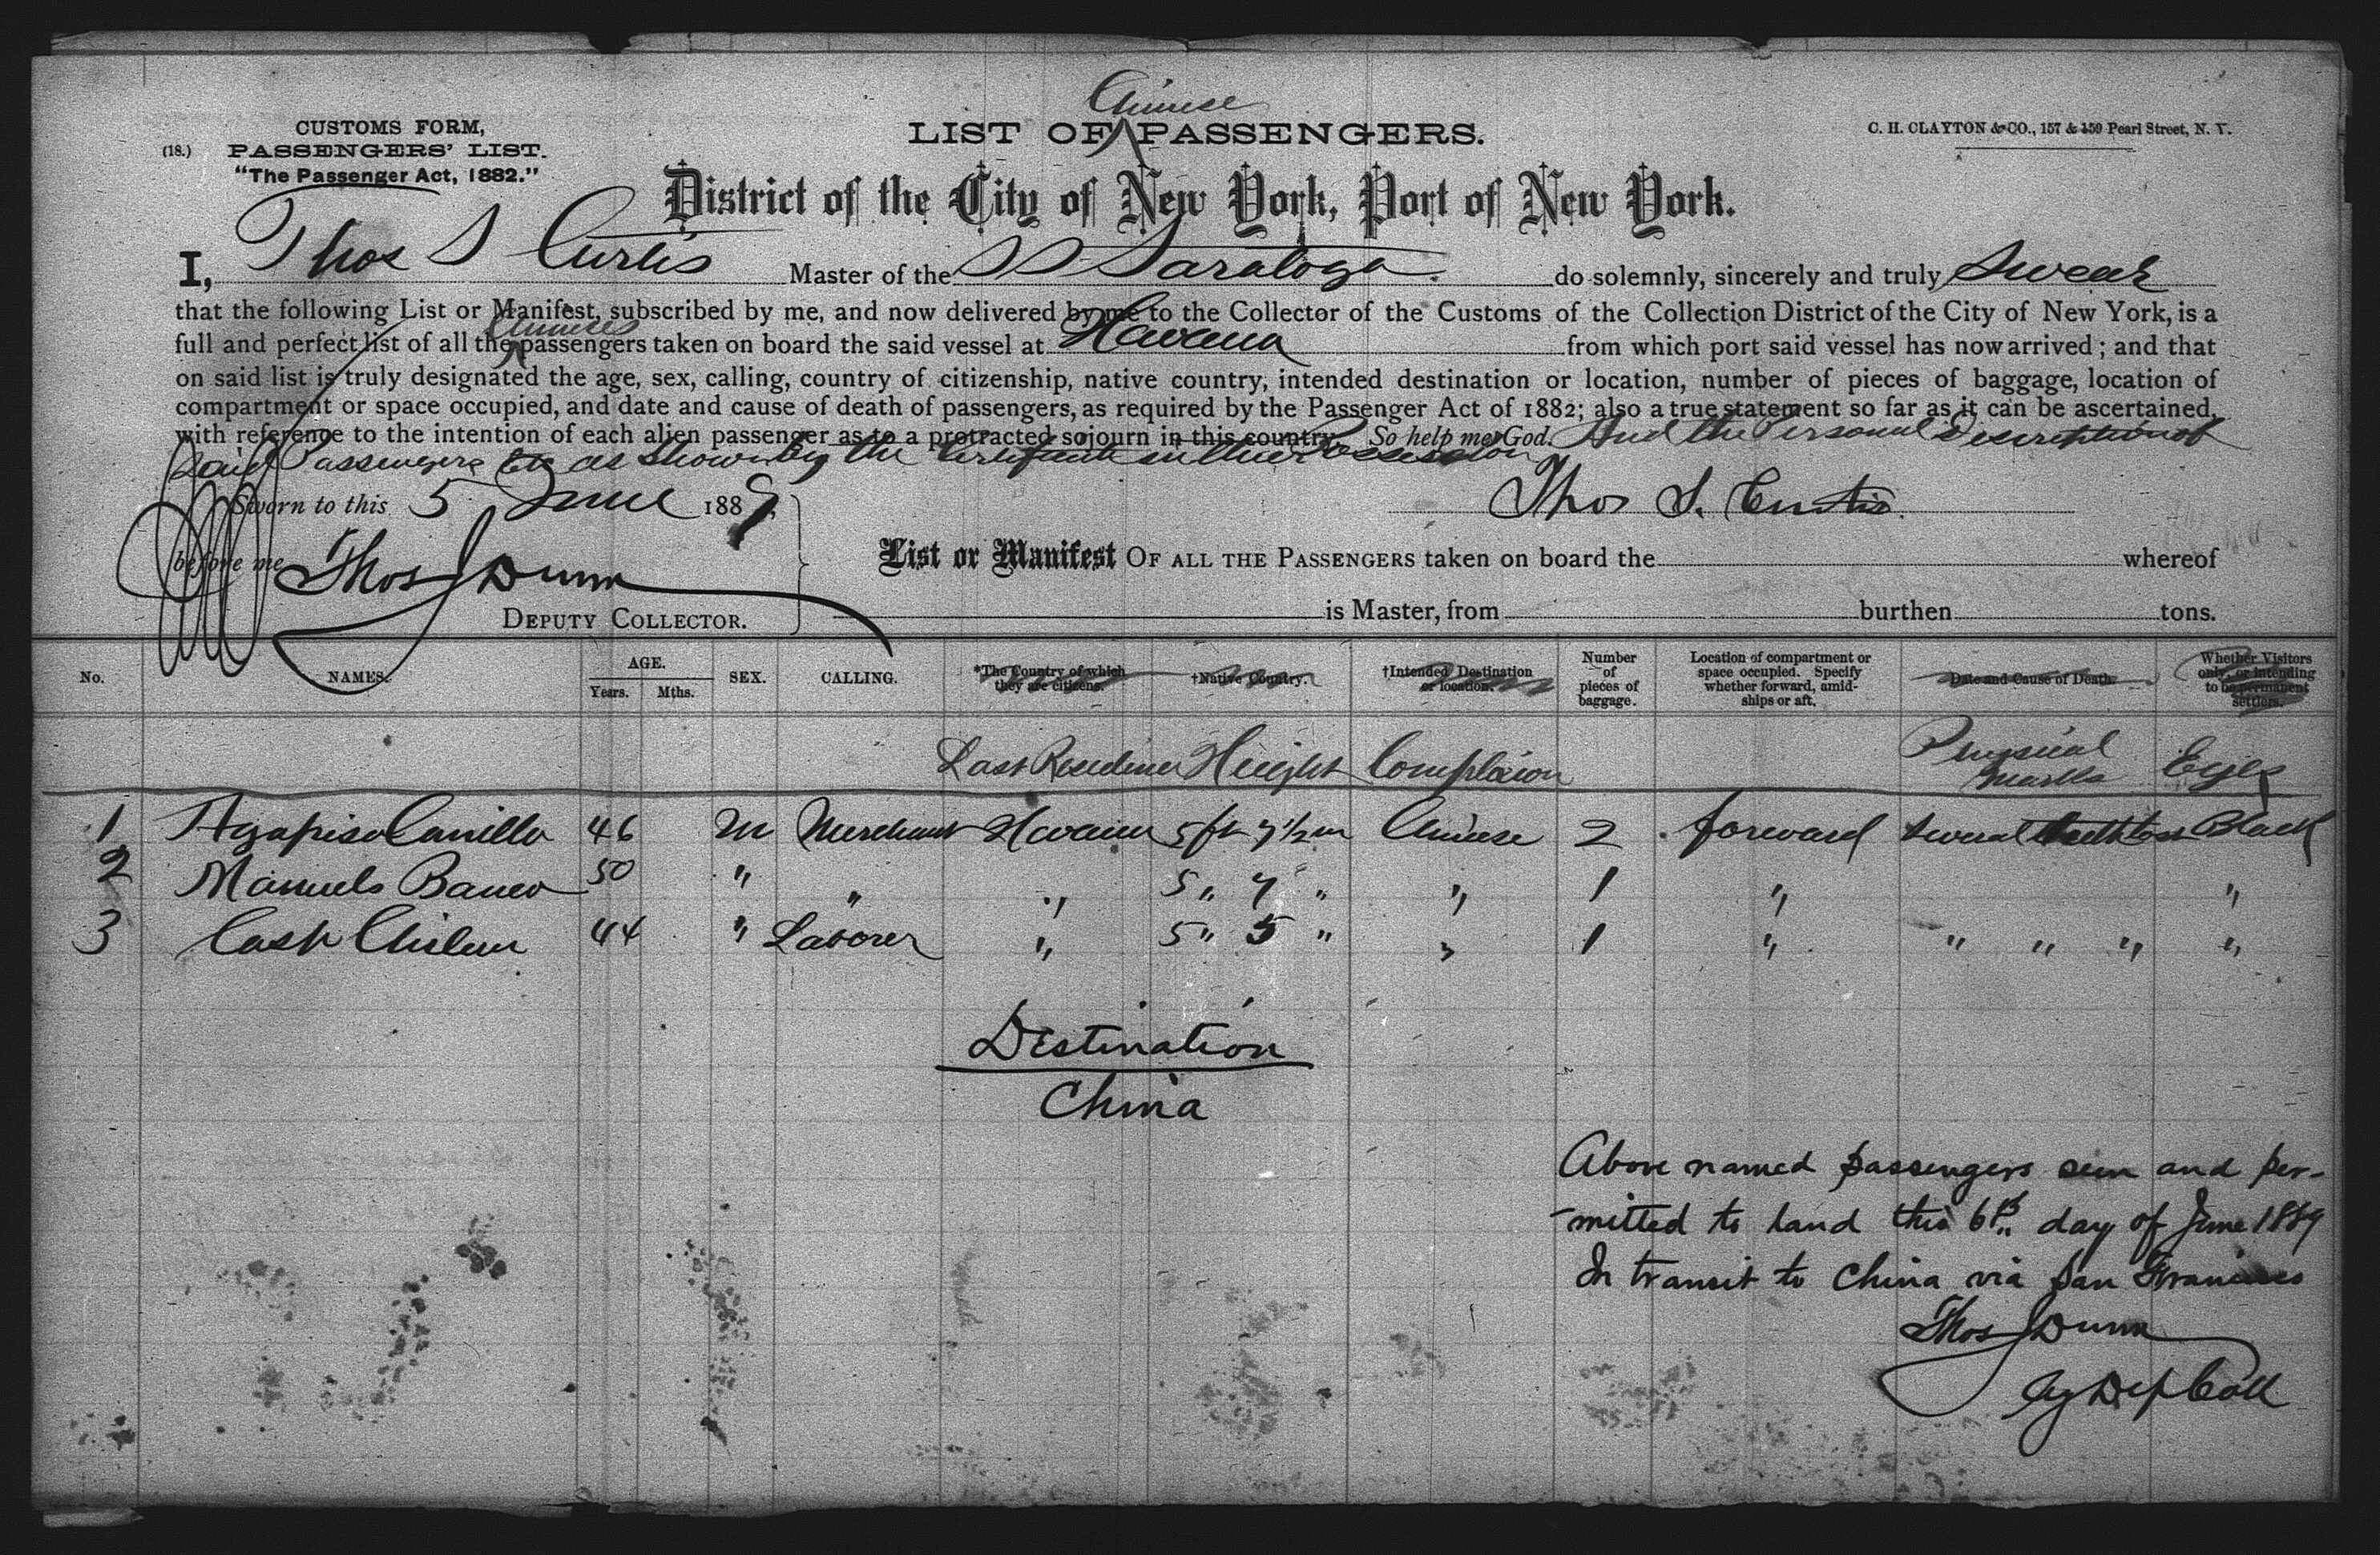 CUSTOMS FORM,
(18.) PASSENGERS' LIST.
"The Passenger Act, 1882."
Chinese
LIST OF PASSENGERS.
C. H. CLAYTON & CO., 157 & 159 Pearl Street, N. Y.
District of the City of New York, Port of New York.
I, Thos S Curtis Master of the SS Saratoga do solemnly, sincerely and truly Swear
that the following List or Manifest, subscribed by me, and now delivered by me to the Collector of the Customs of the Collection District of the City of New York, is a
Chinese
full and perfect list of all the passengers taken on board the said vessel at Havana from which port said vessel has now arrived; and that
on said list is truly designated the age, sex, calling, country of citizenship, native country, intended destination or location, number of pieces of baggage, location of
compartment or space occupied, and date and cause of death of passengers, as required by the Passenger Act of 1882; also a true statement so far as it can be ascertained,
with reference to the intention of each alien passenger as to a protracted sojourn in this country. So help me God. And the Personal Description of
Said Passengers as Shown by the Certificate in their Possession
Sworn to this 5 June 1889,
Thos S. Curtis.
before me Thos J Dunn
DEPUTY COLLECTOR.
List or Manifest OF ALL THE PASSENGERS taken on board the whereof
is Master, from burthen tons.
No. NAMES. AGE. Years. Mths. SEX. CALLING. *The Country of which they are citizens. †Native Country. †Intended Destination or location. Number of pieces of baggage. Location of compartment or space occupied. Specify whether forward, amidships or aft. Date and Cause of Death. Whether Visitors only, or intending to be permanent settlers.
Last Residence Height Complexion Physical marks Eyes
1 Agapiso Canillo 46 M Merchant Havana 5 ft 7 1/2 in Chinese 2 forward several teeth loss Black
2 Manuels 50 " " " 5 " 7 " " 1 " "
3 44 " Laborer " 5 " 5 " " 1 " " " " "
Destination
China
Above named passengers seen and per-
-mitted to land this 6th day of June 1889
In transit to China via San Francisco
Thos J Dunn
Dep Coll